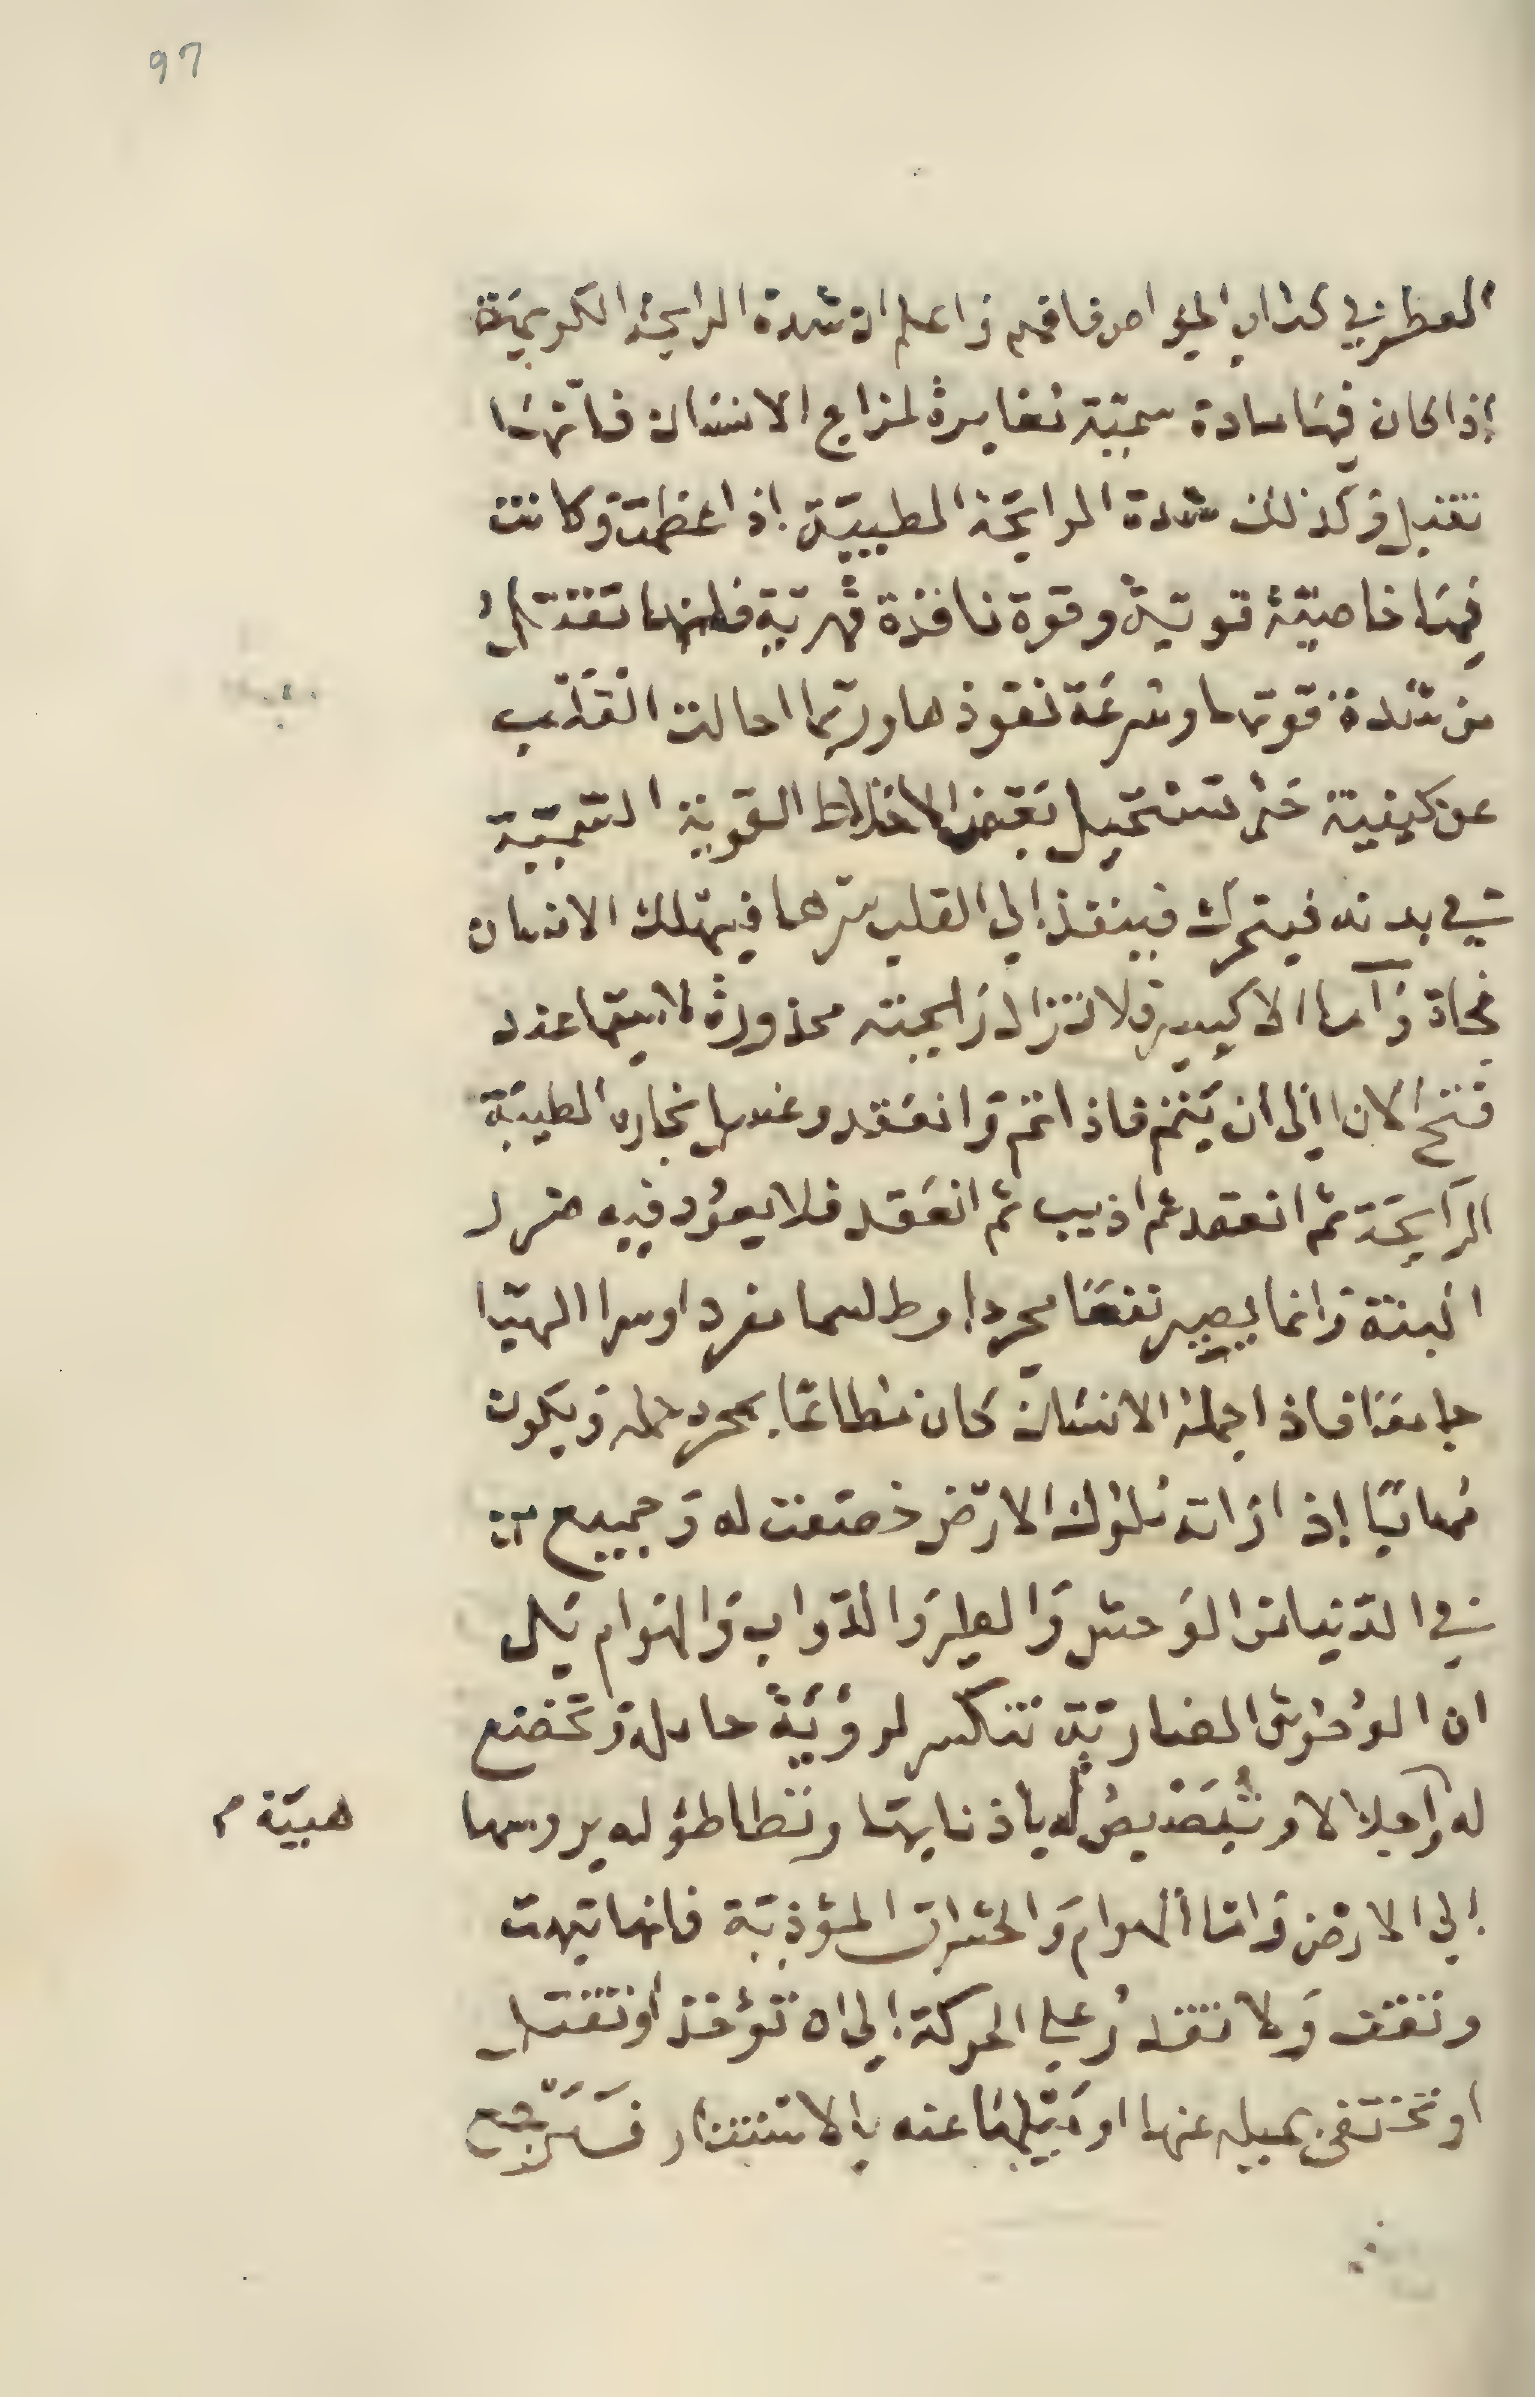 97
العطر في كتاب الخواص فافهم واعلم ان شدة الرايحة الكريهة
إذا كان فيها مادة سمية مغايرة لمزاج الانسان فانها
تقتل وكذلك شدة الرايحة الطيبة إذا عظمت وكانت
فيها خاصية قوية وقوة نافذة قهرية فانها تقتل
من شدة قوتها وسرعة نفوذها وربما احالت القلب
عن كيفية تستحيل بعض الاخلاط القوية السمية
في بدنه فيتحرك فينفذ إلى القلب سرها فيهلك الانسان
فجاة وَآما الاكسير فلا تزال رايحته محذورة لا سيما عند
فتح الانا إلى ان يتم فاذا تم وانعقد وغسل بخاره الطيبة
الرايحة ثم انعقد ثم اذيب ثم انعقد فلا يعود فيه ضرر
البتة وانما يصير نفسًا مجردا وطلسما مفردا وسرا الهيا
جامعًا فاذا حمله الانسان كان مطاعًا بمجرد حمله ويكون
مُهابًا إذا راته ملوك الارض خضعت له وجميع
في الدنيا من الوحش والطير والدواب والهوام بل
ان الوُحُوش الضارية تنكسر لرؤية حامله وتخضع
له وآجلالا وتُبَصْبِصُ له باذنابها وتطاطؤ له بروسها
هيبة م
إلى الارض واما الهوام والحشرات المؤذية فانها تبهت
وتقف وَلا تقدرُ على الحركة إلى ان تؤخذ أو تقتل
او تختفي بميله عنها او مَيْلها عنه بالاستتار فَسَتَرجع